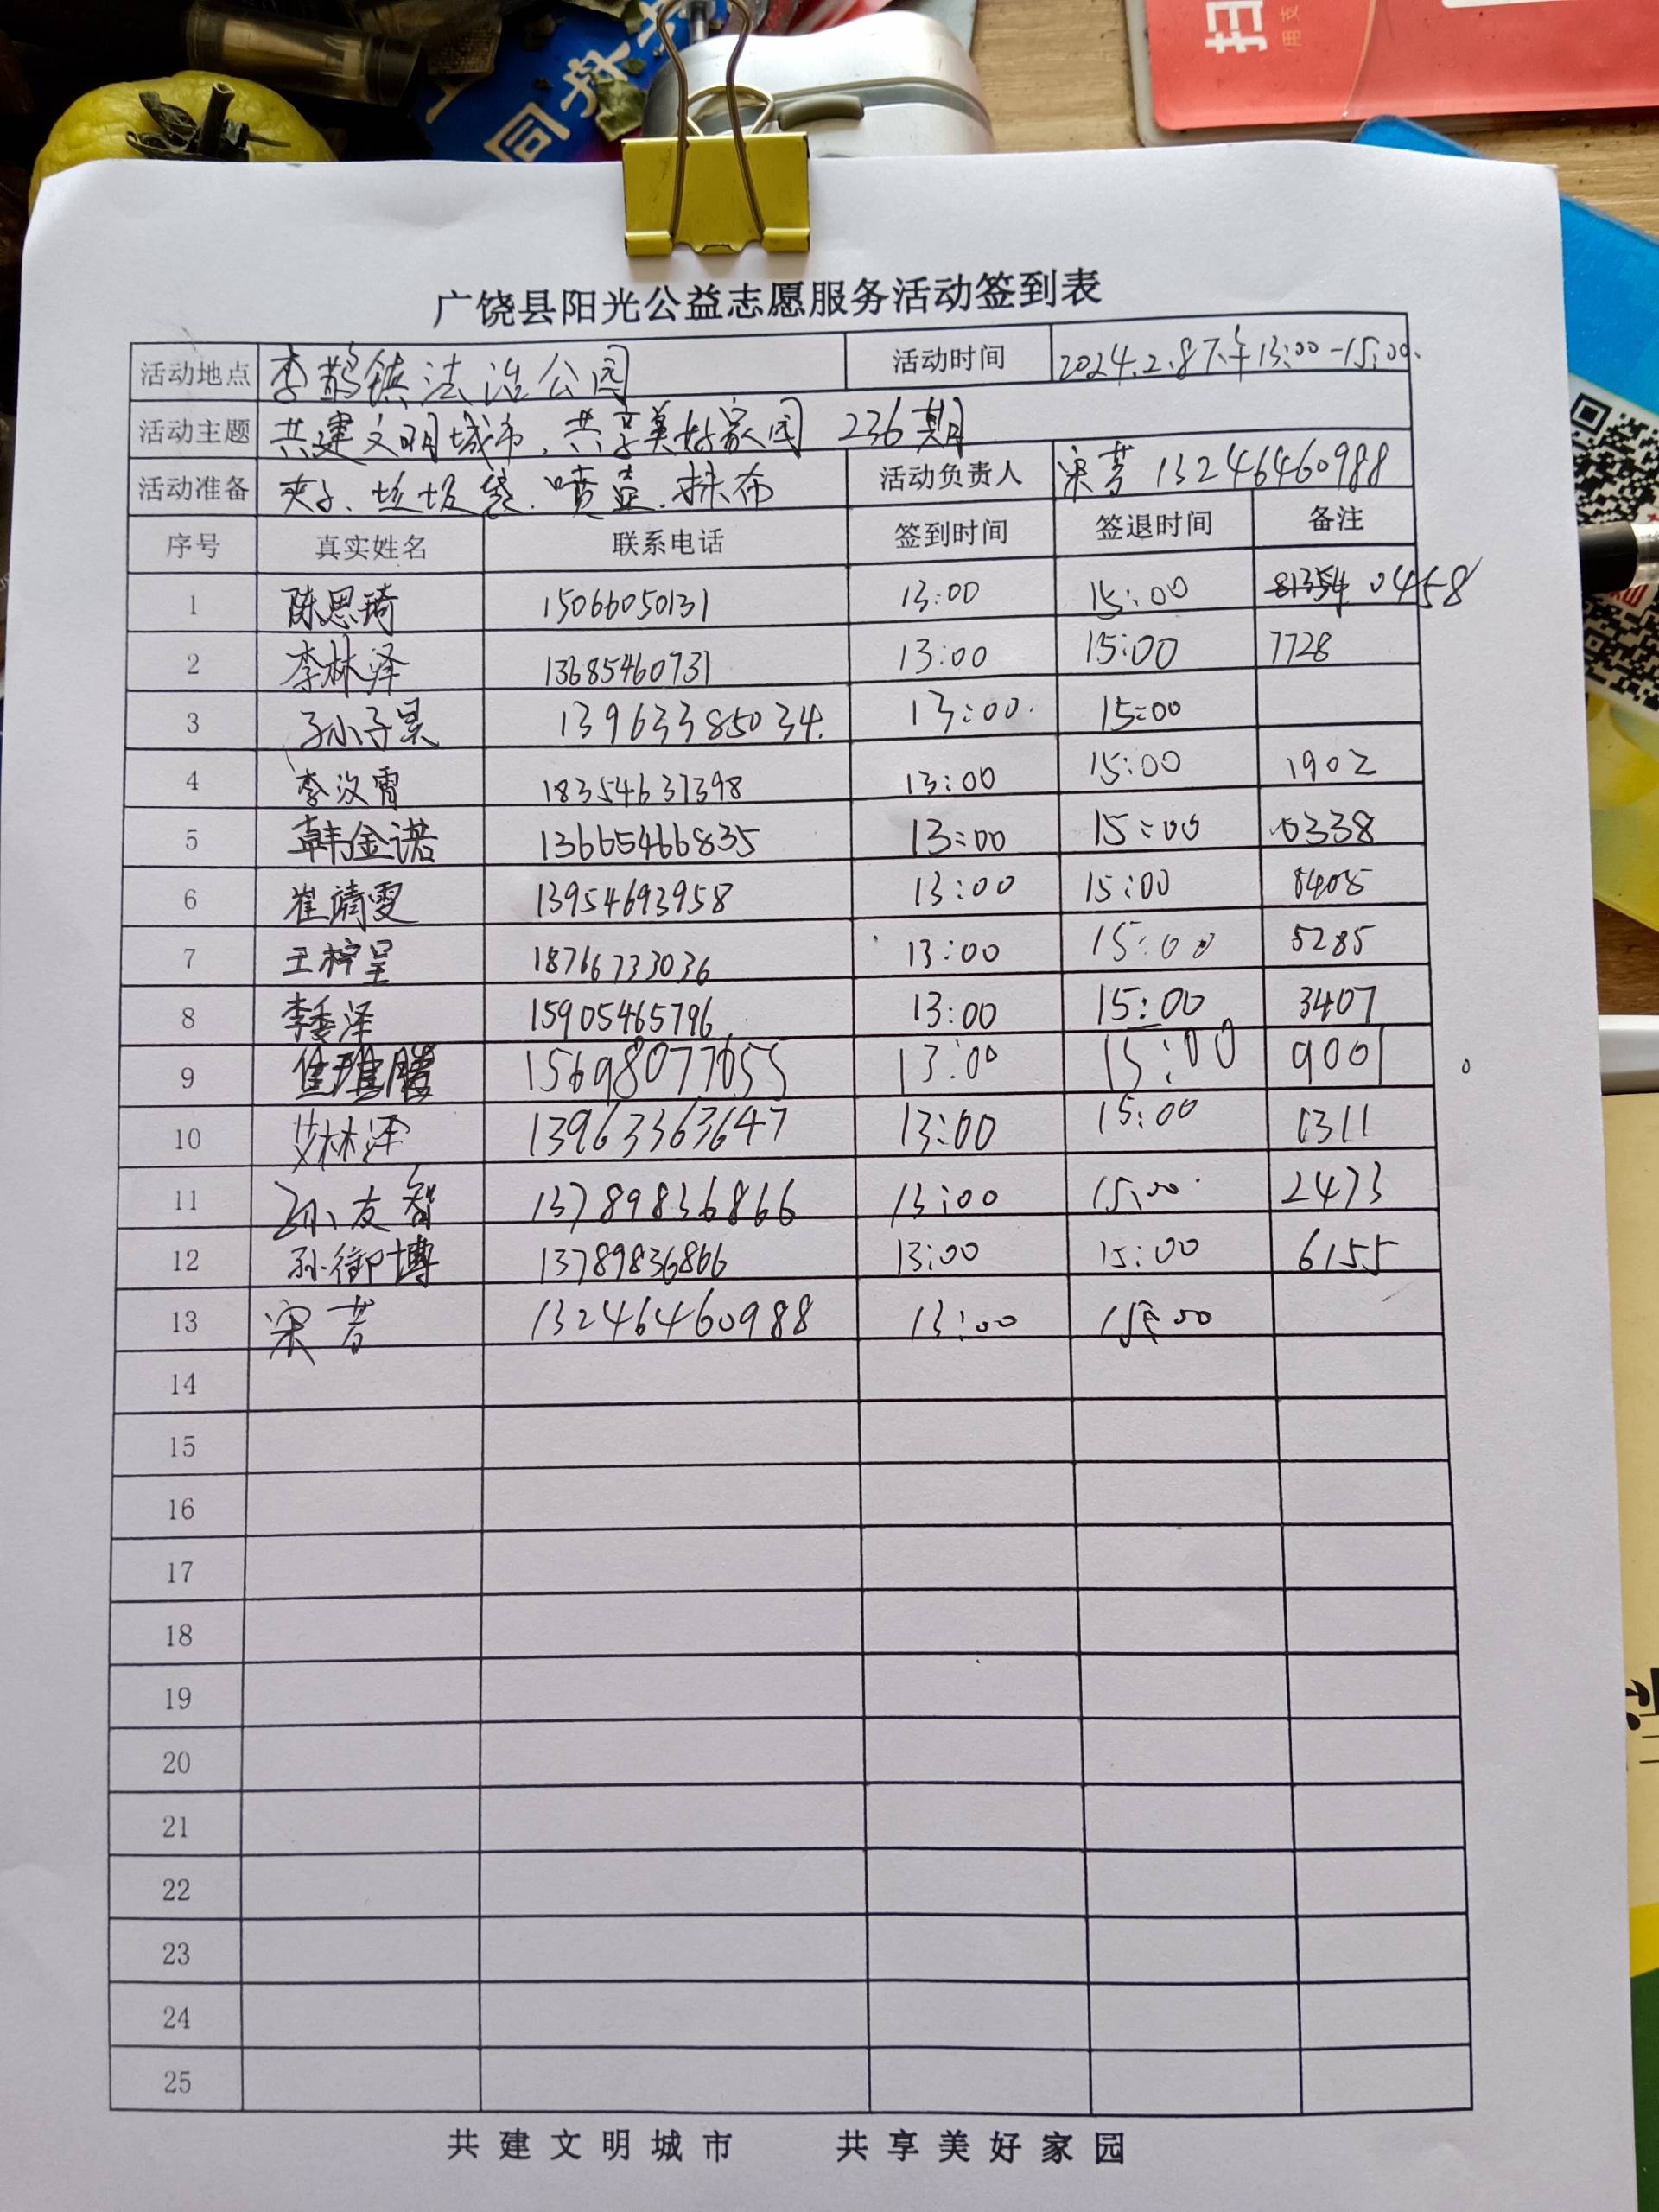 同舟共
扫
用支
广饶县阳光公益志愿服务活动签到表
活动地点 李鹊镇法治公园 活动时间 2024.2.8下午13:00-15:00.
活动主题 共建文明城市、共享美好家园 236期
活动准备 夹子、垃圾袋、喷壶、抹布 活动负责人 宋芳 13246460988
序号 真实姓名 联系电话 签到时间 签退时间 备注
1 陈思琦 15066050131 13:00 15:00 0458
2 李林泽 13685460731 13:00 15:00 7728
3 孙子昊 13963385034. 13:00. 15:00
4 李汶霄 18354631398 13:00 15:00 1902
5 韩金诺 13665466835 13:00 15:00 0338
6 崔靖雯 13954693958 13:00 15:00 8405
7 王梓呈 18766733036 13:00 15:00 5285
8 李泽 15905465796 13:00 15:00 3407
9 15698077655 13:00 15:00 9001
10 艾林泽 13963363647 13:00 15:00 1311
11 孙友智 13789836866 13:00 15:00 2473
12 孙御博 13789836866 13:00 15:00 6155
13 宋芳 13246460988 13:00 15:00
14
15
16
17
18
19
20
21
22
23
24
25
共建文明城市 共享美好家园